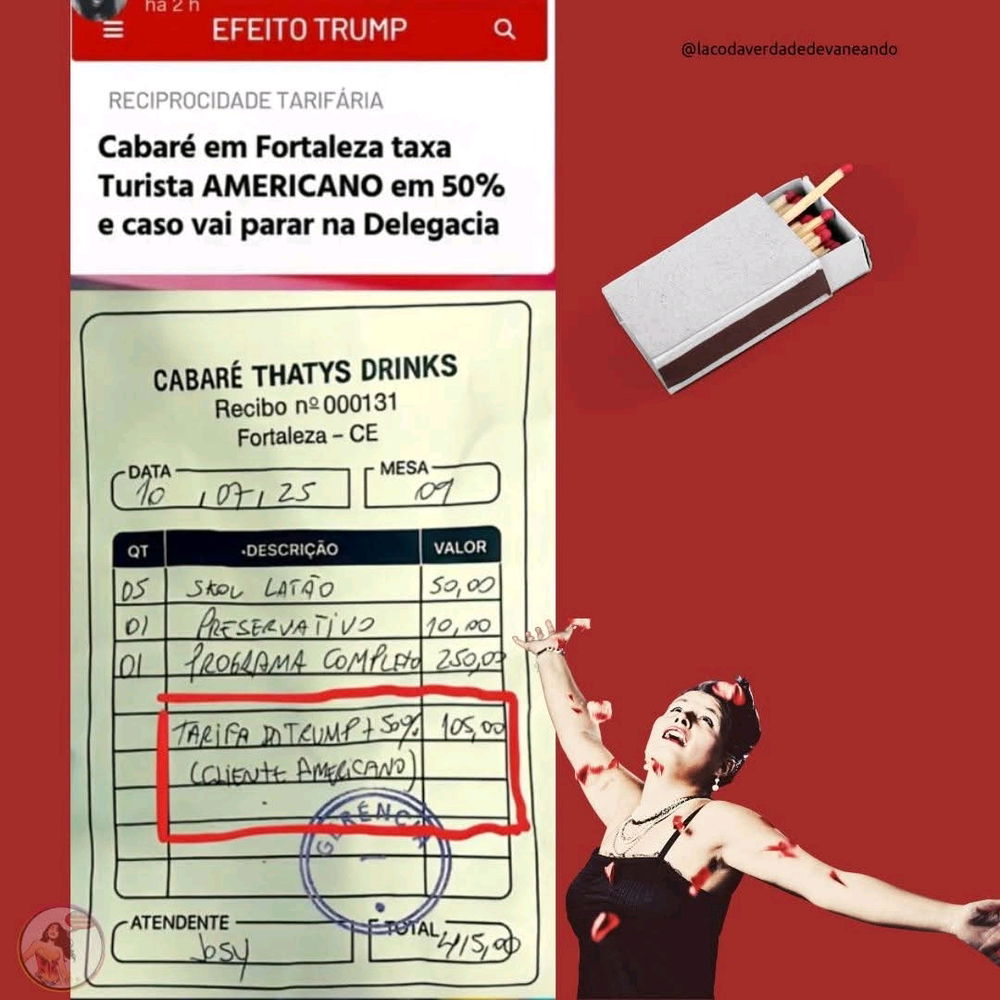 há 2 h
EFEITO TRUMP
@lacodaverdadedevaneando
RECIPROCIDADE TARIFÁRIA
Cabaré em Fortaleza taxa
Turista AMERICANO em 50%
e caso vai parar na Delegacia
CABARÉ THATYS DRINKS
Recibo nº 000131
Fortaleza – CE
DATA
10 / 07 / 25
MESA
09
QT DESCRIÇÃO VALOR
05 SKOL LATÃO 50,00
01 PRESERVATIVO 10,00
01 PROGRAMA COMPLETO 250,00
TARIFA DO TRUMP + 50% 105,00
(CLIENTE AMERICANO)
GERÊNCIA
ATENDENTE
Josy
TOTAL
415,00